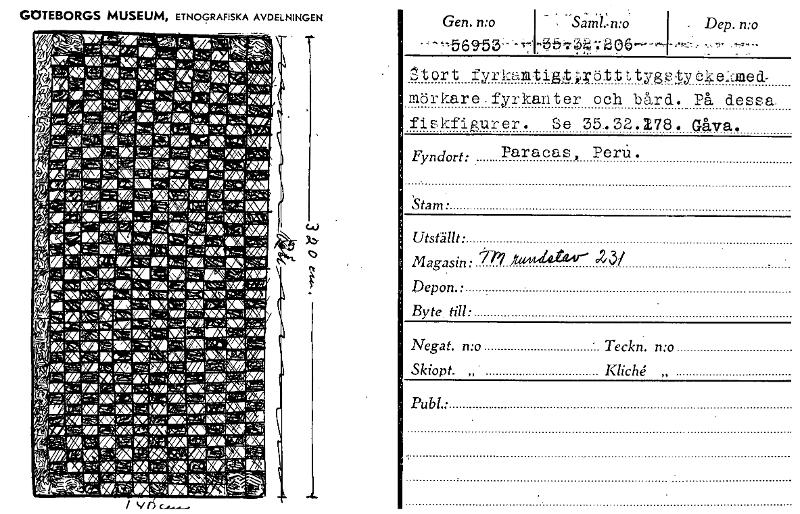 GÖTEBORGS MUSEUM, ETNOGRAFISKA AVDELNINGEN
320 cm.
Gen. n:o Saml.n:o Dep. n:o
56953 35.32.206
Stort fyrkantigt, rött tygstycke med
mörkare fyrkanter och bård. På dessa
fiskfigurer. Se 35.32.178. Gåva.
Fyndort: Paracas, Peru.
Stam:
Utställt:
Magasin: TM rundstav 231
Depon.:
Byte till:
Negat. n:o Teckn. n:o
Skiopt. „ Kliché „
Publ.: